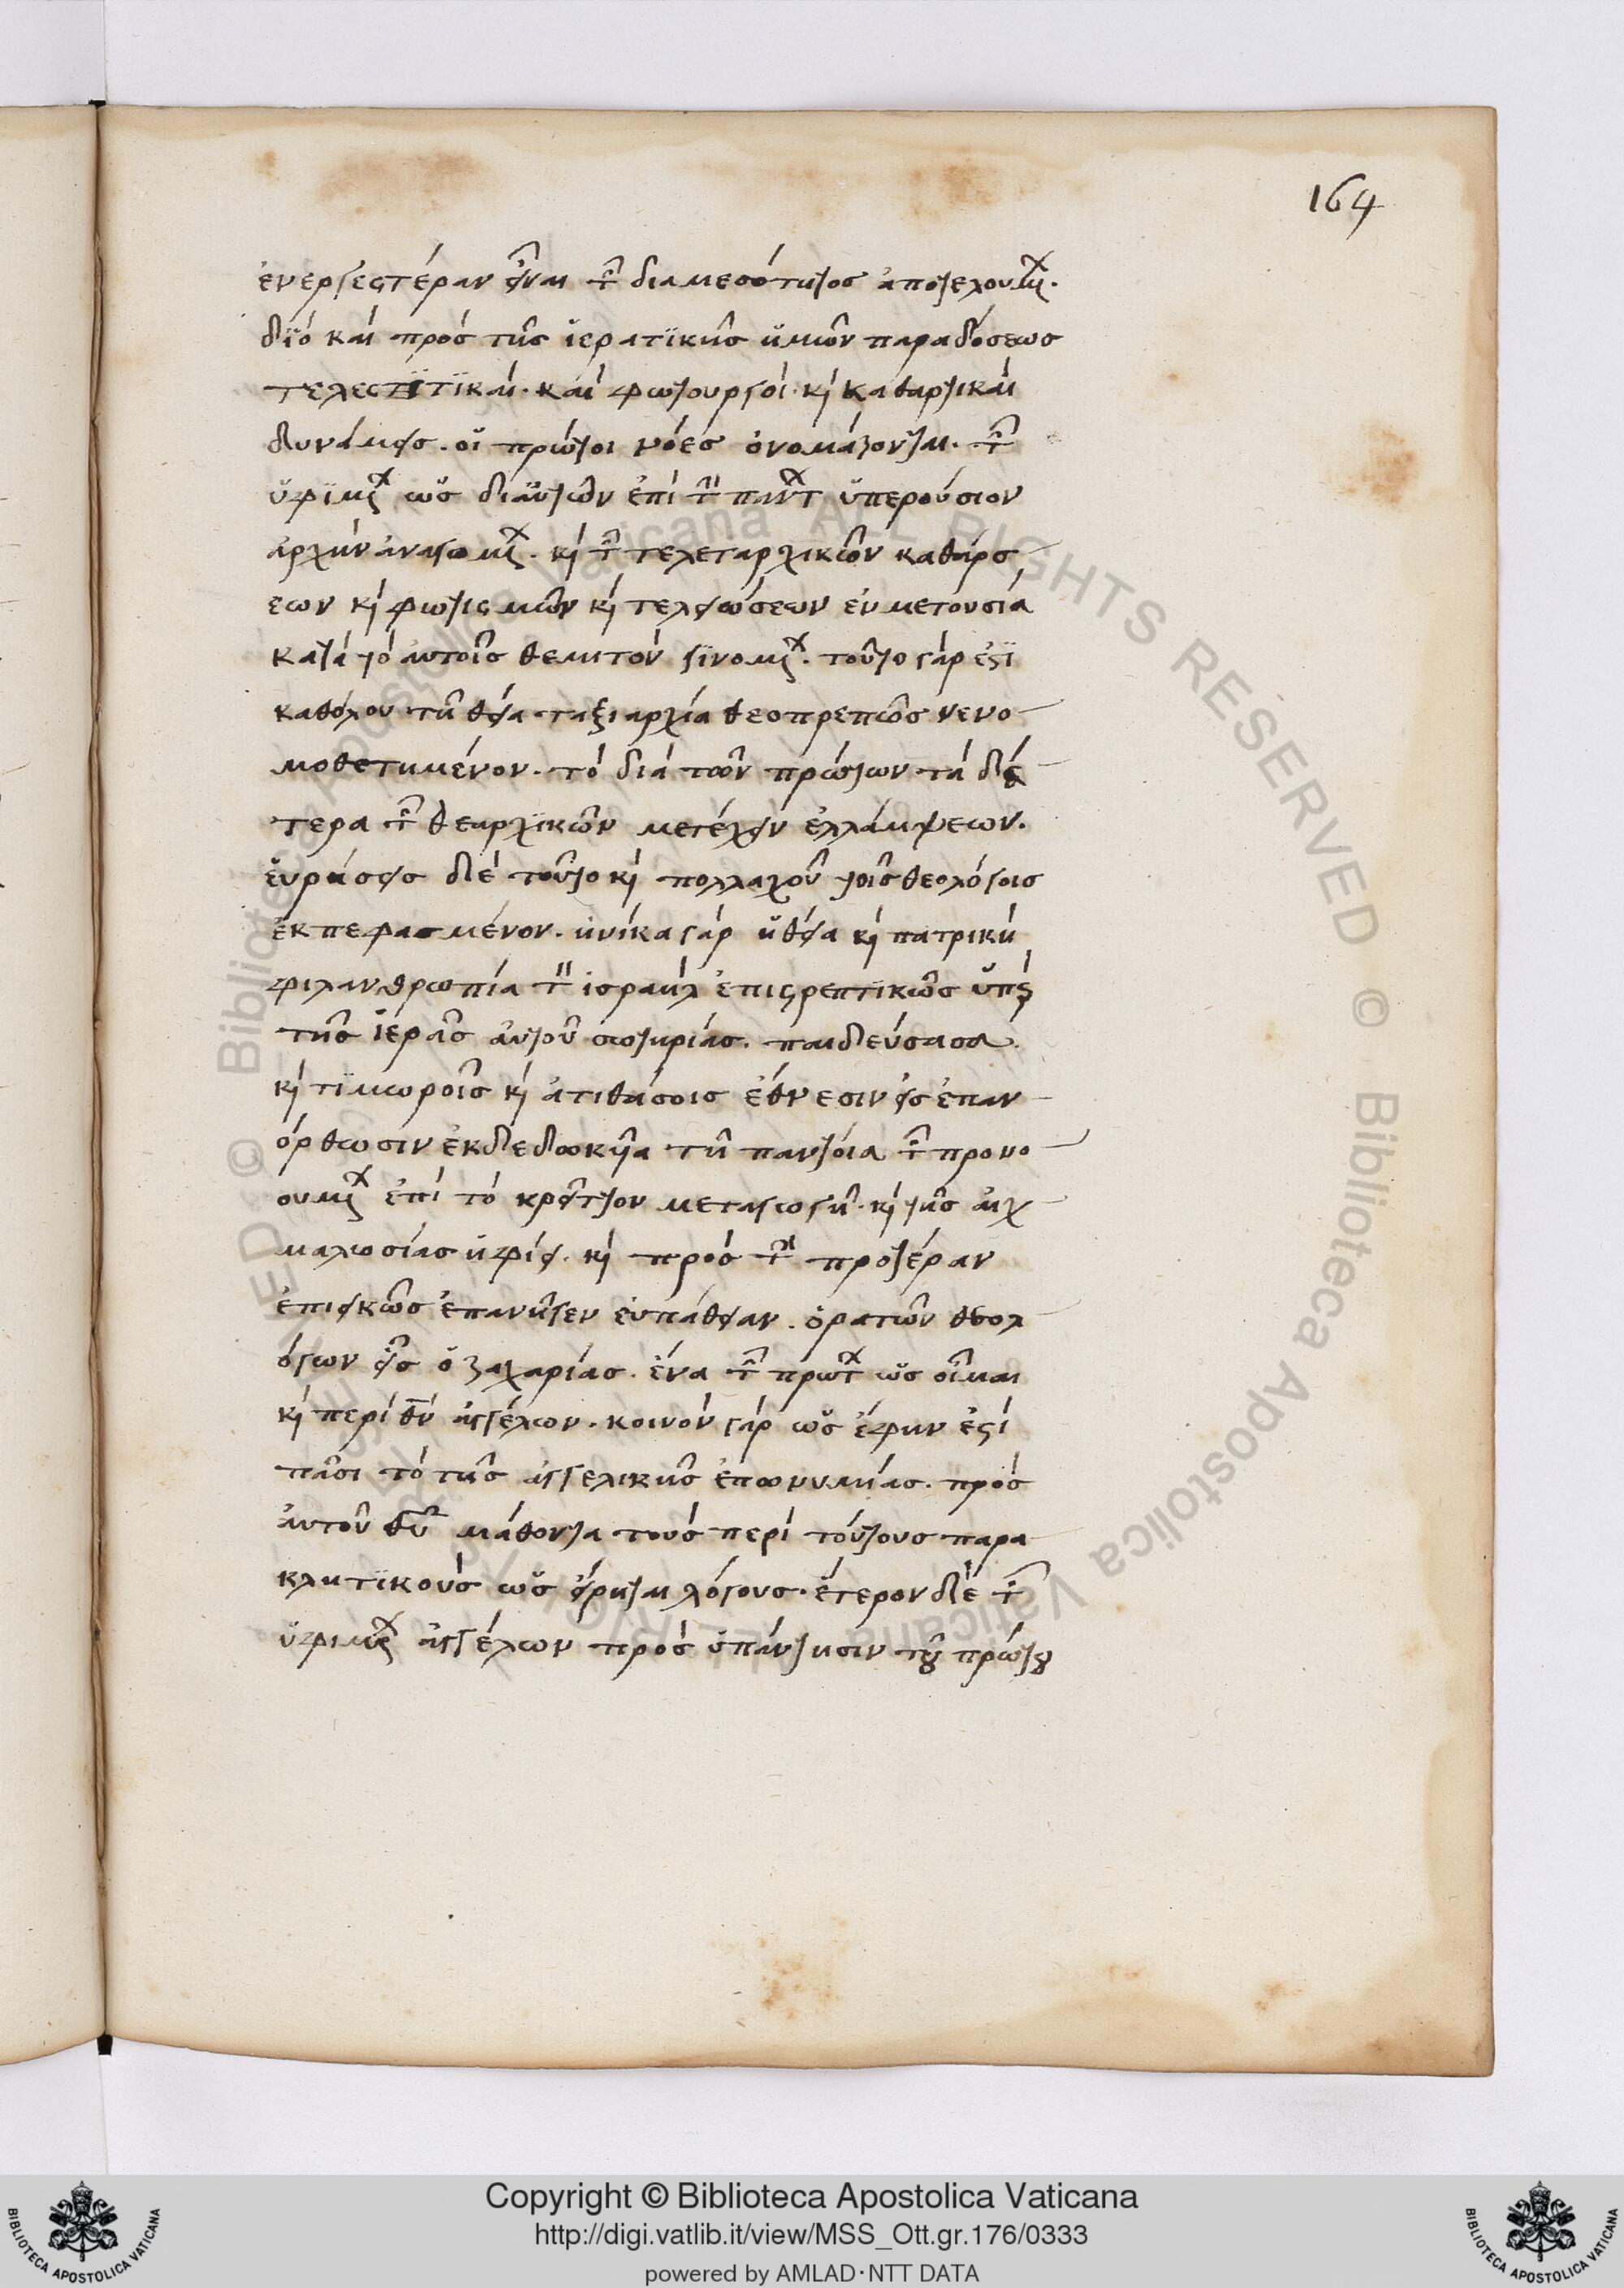 164
ἐνεργεστέραν εἶναι τῶν διαμεσότητος ἀποτελουμένων.
διὸ καὶ πρὸς τῆς ἱερατικῆς ἡμῶν παραδόσεως
καὶ φωτουργοὶ· καὶ καθαρτικαὶ
δυνάμεις. οἱ πρῶτοι νόες ὀνομάζονται. τῶν
ὑφειμένων ὡς δι αὐτῶν ἐπὶ τὴν πάντων ὑπερούσιον
ἀρχὴν ἀναγομένων. καὶ τῶν τελεταρχικῶν καθάρσ
εων καὶ φωτισμῶν καὶ τελειώσεων ἐν μετουσία
κατὰ τὸ αὐτοῖς θεμιτὸν γινομένων. τοῦτο γάρ ἐστὶ
καθόλου τῆ θεία ταξιαρχία θεοπρεπῶς νενο-
μοθετημένον. τὸ διὰ τῶν πρώτων τὰ δεύ-
τερα τῶν θεαρχικῶν μετέχειν ἐλλάμψεων.
εὑρήσεις δὲ τοῦτο καὶ πολλαχοῦ τοῖς θεολόγοις
ἐκπεφασμένον. ἡνίκα γὰρ ἡ θεία καὶ πατρικὴ
φιλανθρωπία τὸν ἰσραὴλ ἐπιστρεπτικῶς ὑπὲρ
τῆς ἱερᾶς αὐτοῦ σωτηρίας. παιδεύσασα.
καὶ τιμωροῖς καὶ ἀτιθάσοις ἔθνεσιν εἰς ἐπαν-
όρθωσιν ἐκδεδωκυῖα τῆ παντοία τῶν προνο-
ουμένων ἐπὶ τὸ κρεῖττον μεταγωγῆ. καὶ τῆς αἰχ-
μαλωσίας ὑφίει. καὶ πρὸς τὴν προτέραν
ἐπιεικῶς ἐπανῆγεν εὐπάθειαν. ὁρατῶν θεολ-
όγων εἷς ὁ ζαχαρίας. ἕνα τῶν πρώτων ὡς οἶμαι
καὶ περὶ θν ἀγγέλων. κοινὸν γὰρ ὡς ἔφην ἐστὶ
πᾶσι τὸ τῆς ἀγγελικῆς ἐπωνυμίας. πρὸς
αὐτοῦ θυ μαθόντα τοὺς περὶ τούτους παρα-
κλητικοὺς ὡς εἴρηται λόγους. ἕτερον δὲ τῶν
ὑφειμένων ἀγγέλων πρὸς ὑπάντησιν τοῦ πρώτου
Copyright © Biblioteca Apostolica Vaticana
http://digi.vatlib.it/view/MSS_Ott.gr.176/0333
powered by AMLAD·NTT DATA
BIBLIOTECA APOSTOLICA VATICANA
BIBLIOTECA APOSTOLICA VATICANA
© Biblioteca Apostolica Vaticana ALL RIGHTS RESERVED © Biblioteca Apostolica Vaticana ALL RIGHTS RESERVED